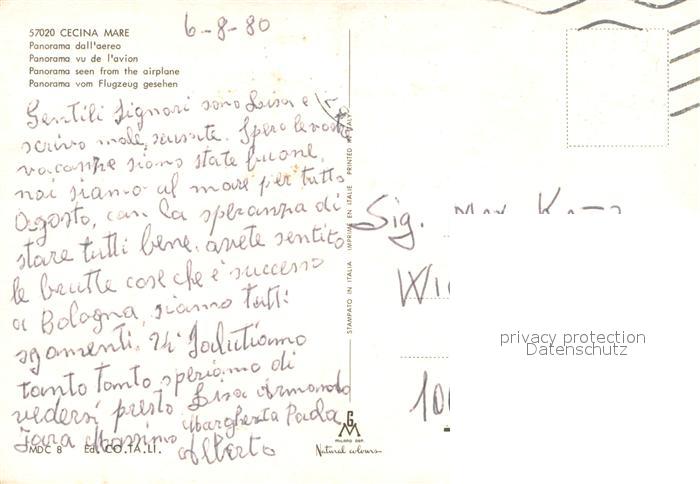 57020 CECINA MARE
Panorama dall'aereo
Panorama vu de l'avion
Panorama seen from the airplane
Panorama vom Flugzeug gesehen
6-8-80
Gentili Signori sono Lisa e
scrivo male, scusate. Spero le vostre
vacanze siano state buone,
noi siamo al mare per tutto
Agosto, con la speranza di
stare tutti bene. avete sentito
le brutte cose che è successo
a Bologna, siamo tutti
sgomenti. Vi salutiamo
tanto tanto speriamo di
vederci presto. Lisa Armando
Margherita Paola
Massimo
Alberto
MDC 8 Ed. CO.TA.LI.
STAMPATO IN ITALIA IMPRIMÉ EN ITALIE PRINTED IN ITALY
MILANO
Natural colours
Sig.
privacy protection
Datenschutz